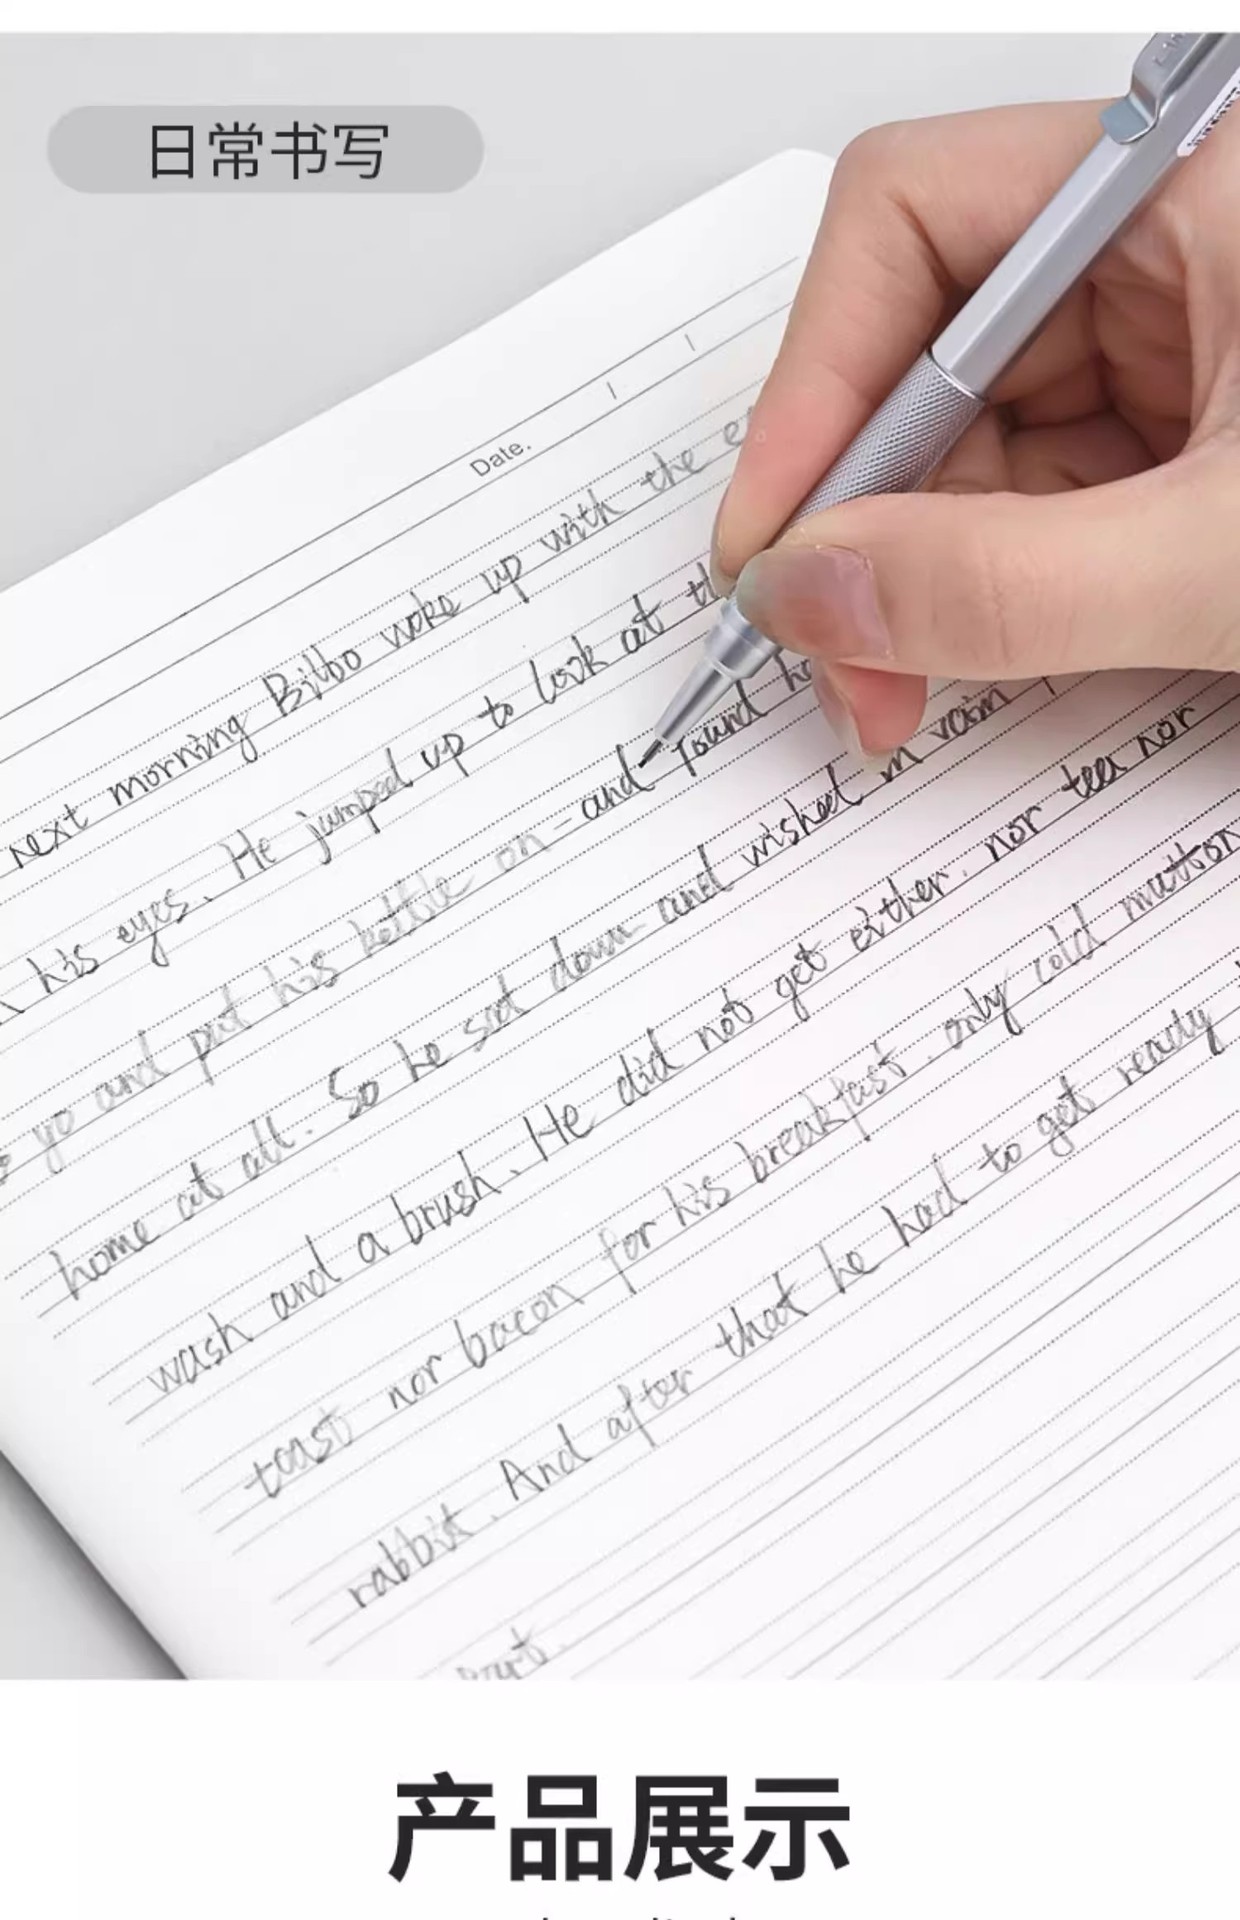 日常书写
Date.
next morning Bilbo woke up with the
his eyes. He jumped up to look at
go and put his kettle on - and found
home at all. So he sat down and wished in vain
wash and a brush. He did not get either. nor tea nor
toast nor bacon for his breakfast. only cold mutton
rabbit. And after that he had to get ready
产品展示